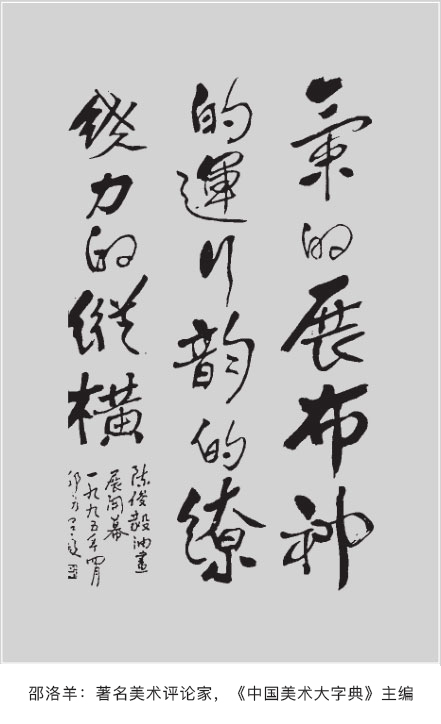 氣的展布神
的運行韵的繚
绕力的縱橫
陈俊毅油畫
展開幕
一九九五年四月
邵洛羊
邵洛羊：著名美术评论家，《中国美术大字典》主编